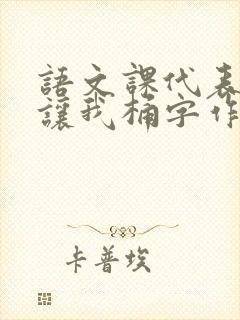 語文課代表
讓我桶字作
卡普埃